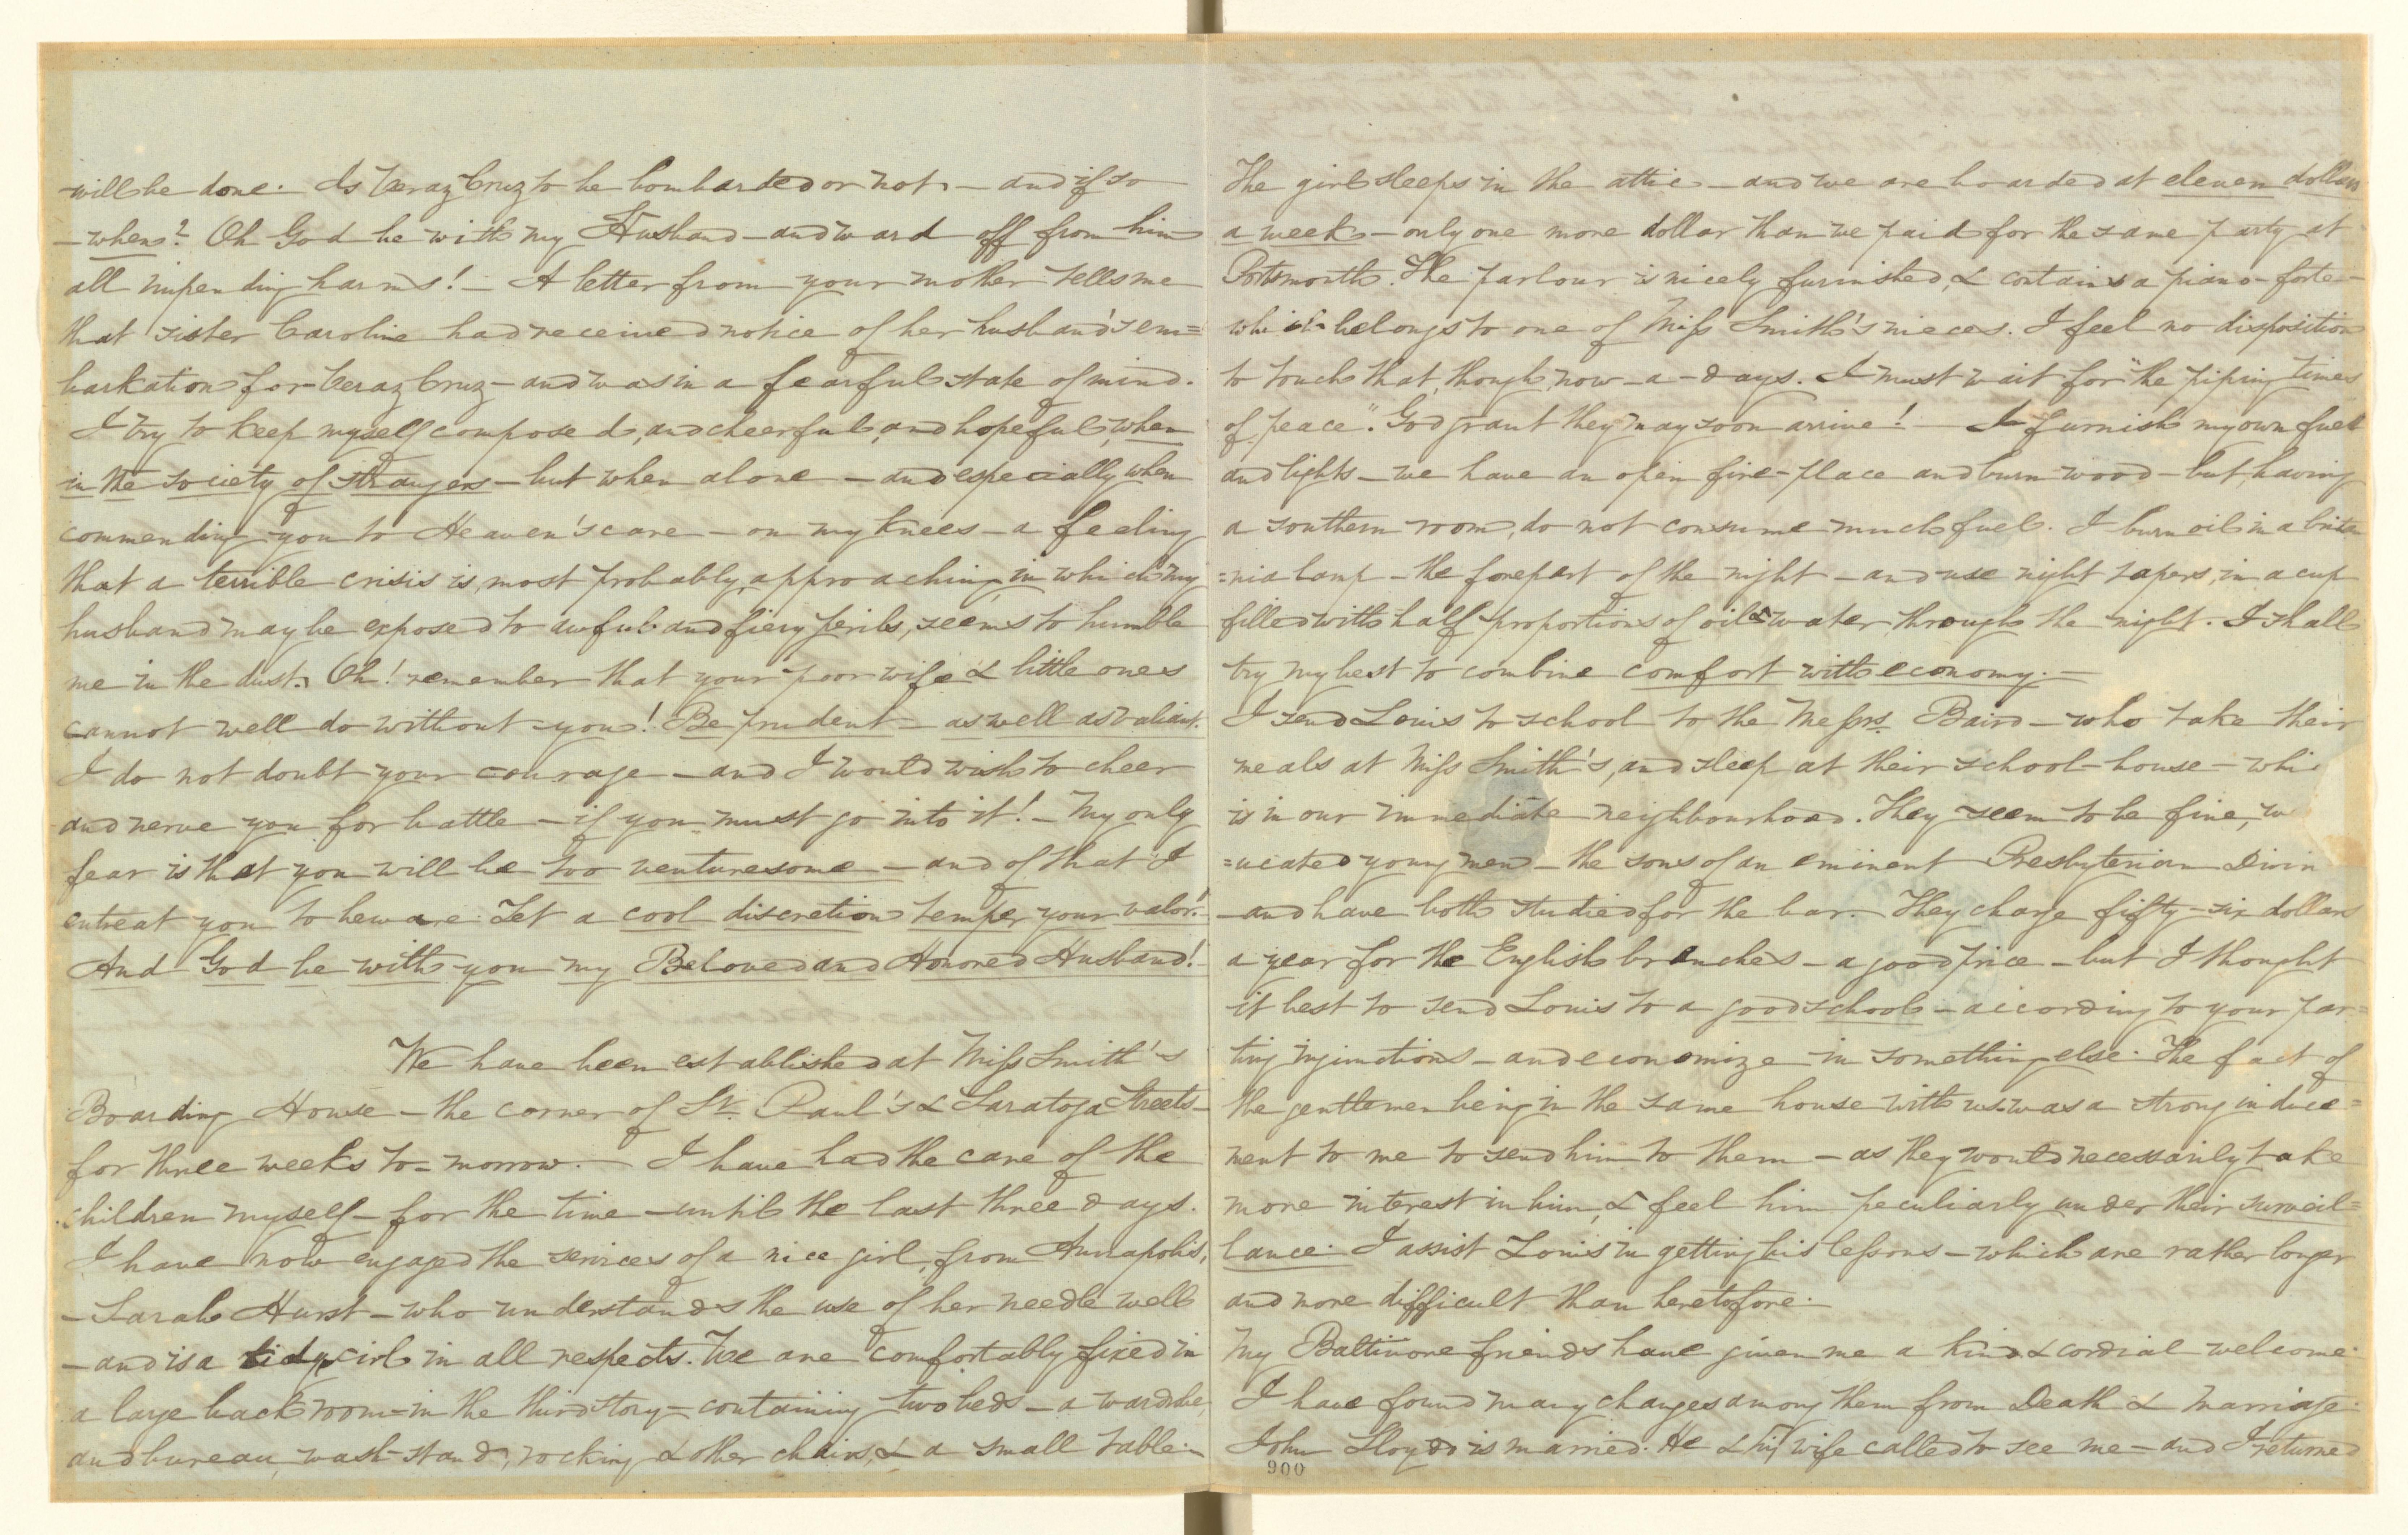 will be done. Is Veraz Cruz to be bombarded or not, - and if so
- when? Oh God be with my Husband - and ward off from him
all impending harms! - A letter from your mother tells me
that sister Caroline had received notice of her husband's em=
barkation for Veraz Cruz - and was in a fearful state of mind.
I try to keep myself composed, and cheerful, and hopeful, when
in the society of strangers - but when alone - and especially, when
commending you to Heaven's care - on my knees - a feeling
that a terrible crisis is, most probably, approaching, in which my
husband may be exposed to awful and fiery perils, seems to humble
me in the dust. Oh! remember that your poor wife & little ones
cannot well do without you! Be prudent - as well as valiant.
I do not doubt your courage - and I would wish to cheer
and nerve you for battle - if you must go into it! - My only
fear is that you will be too venturesome - and of that I
entreat you to beware. Let a cool discretion temper your valor!
And God be with you my Beloved and Honored Husband!
We have been established at Miss Smith's
Boarding House - the corner of St. Paul's & Saratoga Streets -
for three weeks to-morrow. - I have had the care of the
children myself - for the time - until the last three days.
I have now engaged the services of a nice girl, from Annapolis,
- Sarah Hurst - who understands the use of her needle well
- and is a tidy girl in all respects. We are comfortably fixed in
a large back room - in the third story - containing two beds - a wardrobe,
and bureau, wash-stand, rocking & other chairs, & a small table. -
The girl sleeps in the attic - and we are boarded at eleven dollars
a week - only one more dollar than we paid for the same party at
Portsmouth. The parlour is nicely furnished, & contains a piano-forte -
which belongs to one of Miss Smith's nieces. I feel no disposition
to touch that, though, now-a-days. I must wait for "the piping times
of peace". God grant they may soon arrive! - I furnish my own fuel
and lights - we have an open fire-place and burn wood - but, having
a southern room, do not consume much fuel. I burn oil in a brita
=nia lamp - the forepart of the night - and use night tapers, in a cup
filled with half proportions of oil & water, through the night. I shall
try my best to combine comfort with economy. -
I send Louis to school to the Messrs. Baird - who take their
meals at Miss Smith's, and sleep at their school-house - whi
is in our immediate neighbourhood. They seem to be fine,
=ucated young men - the sons of an eminent Presbyterian Divin
- and have both studied for the bar. They charge fifty-six dollars
a year for the English branches - a good price - but I thought
it best to send Louis to a good school - according to your par=
ting injunctions - and economize in something else. The fact of
the gentlemen being in the same house with us was a strong induce=
ment to me to send him to them - as they would necessarily take
more interest in him, & feel him peculiarly under their surveil=
lance. I assist Louis in getting his lessons - which are rather longer
and more difficult than heretofore. -
My Baltimore friends have given me a kind & cordial welcome.
I have found many changes among them from Death & Marriage.
John Lloyd is married. He & his wife called to see me - and I returned
900